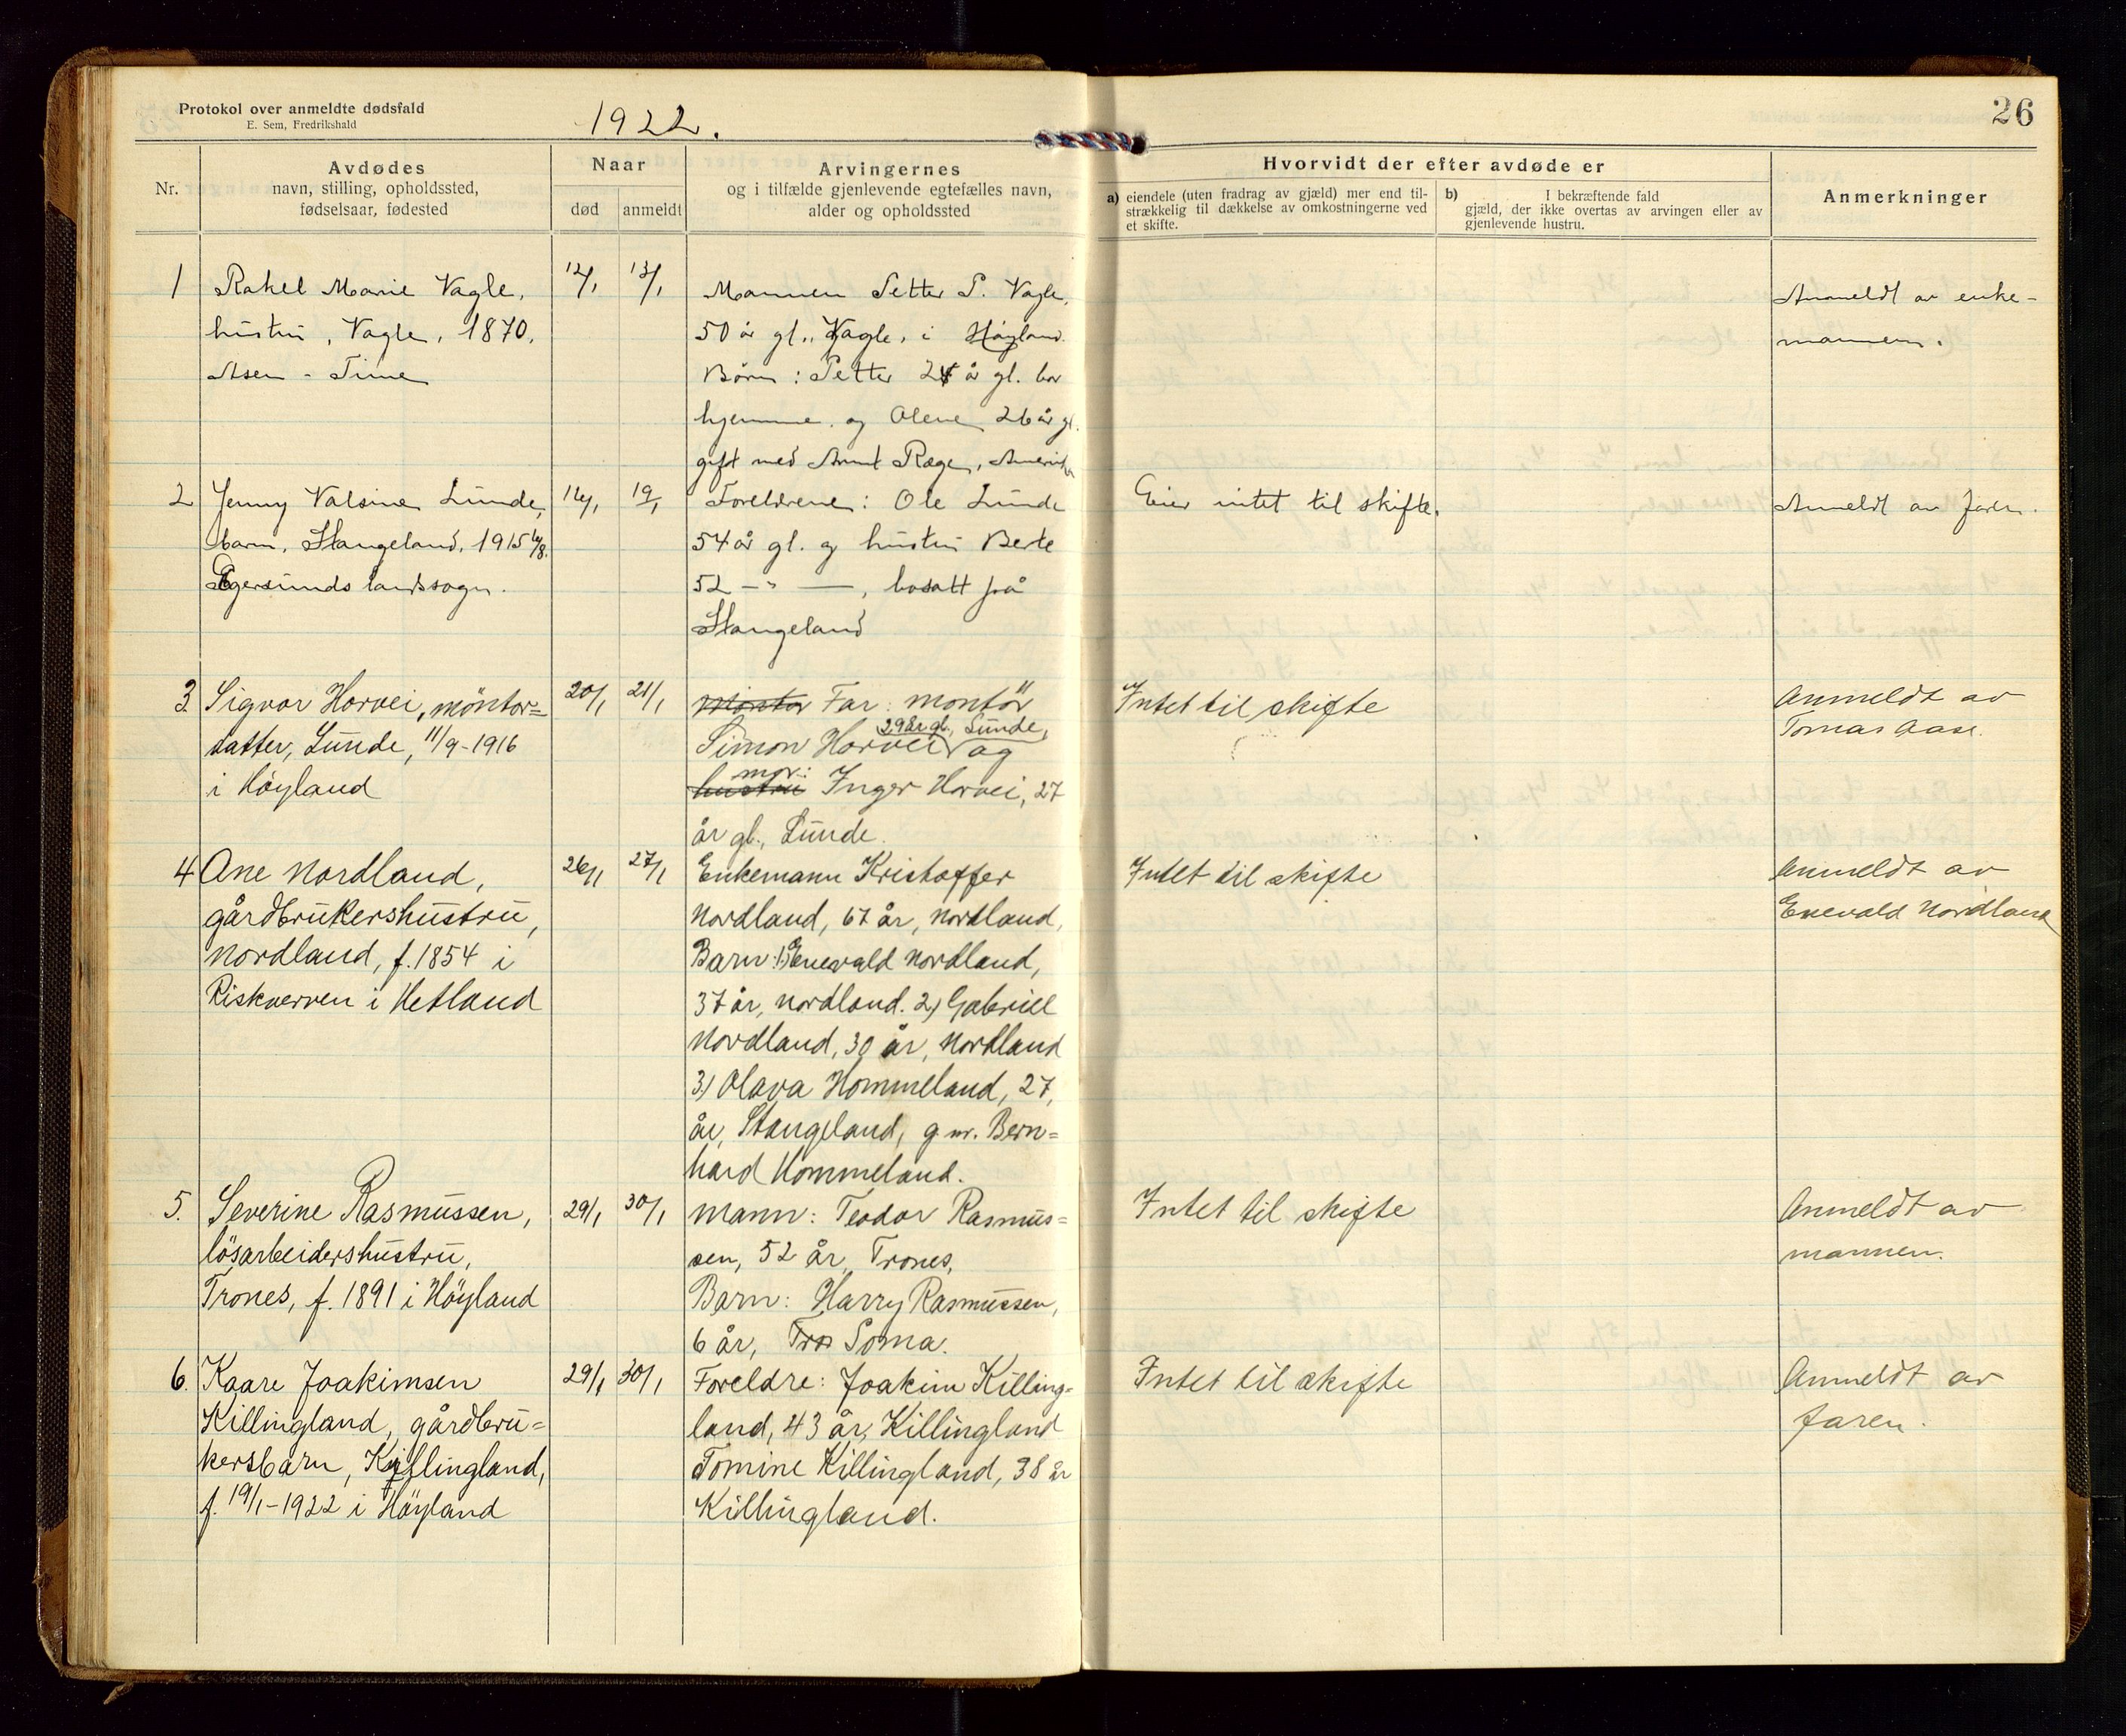 Protokol over anmeldte dødsfald
E. Sem, Fredrikshald
1922.
26
Nr.
Avdødes
navn, stilling, opholdssted,
fødselsaar, fødested
Naar
død
anmeldt
Arvingernes
og i tilfælde gjenlevende egtefælles navn,
alder og opholdssted
Hvorvidt der efter avdøde er
a) eiendele (uten fradrag av gjæld) mer end til-
strækkelig til dækkelse av omkostningerne ved
et skifte.
b) I bekræftende fald
gjæld, der ikke overtas av arvingen eller av
gjenlevende hustru.
Anmerkninger
1
Rakel Marie Vagle,
hustru, Vagle, 1870,
Asen - Time
12/1
13/1
Mannen Petter P. Vagle,
50 år gl., Vagle, i Høyland.
Børn: Petter 24 år gl. bor
hjemme, og Olene 26 år gl.
gift med Arnt Ræge, Amerika
Anmeldt av enke-
mannen.
2
Jenny Valsine Lunde,
barn, Stangeland, 1915 4/8.
Egersunds landssogn.
16/1
19/1
Foreldrene: Ole Lunde
54 år gl. og hustru Berte
52 -"- , bosatt på
Stangeland
Eier intet til skifte.
Anmeldt av faren.
3.
Sigvor Horvei, möntør=
datter, Lunde, 11/9-1916
i Höyland
20/1
21/1
Montør Far: montör
29 år gl., Lunde,
Simon Horvei og
mor:
hustru Inger Horvei, 27
år gl., Lunde.
Intet til skifte
Anmeldt av
Tomas Aase.
4
Ane Nordland,
gårdbrukershustru,
Nordland, f. 1854 i
Riskverven i Hetland
26/1
27/1
Enkemann Kristoffer
Nordland, 67 år, Nordland,
Barn: 1) Enevald Nordland,
37 år, Nordland. 2) Gabriel
Nordland, 30 år, Nordland
3) Olava Hommeland, 27,
år, Stangeland, g. m. Bern=
hard Hommeland.
Intet til skifte
Anmeldt av
Enevald Nordland
5.
Severine Rasmussen,
lösarbeidershustru,
Trones, f. 1891 i Höyland
29/1
30/1
Mann: Teodor Rasmus=
sen, 52 år, Trones,
Barn: Harry Rasmussen,
6 år, Tron Soma.
Intet til skifte
Anmeldt av
mannen.
6.
Kaare Joakimsen
Killingland, gårdbru=
kersbarn, Killingland,
f. 19/1-1922 i Höyland
29/1
30/1
Foreldre: Joakim Killing=
land, 43 år, Killingland
Tomine Killingland, 38 år
Killingland.
Intet til skifte
Anmeldt av
faren.